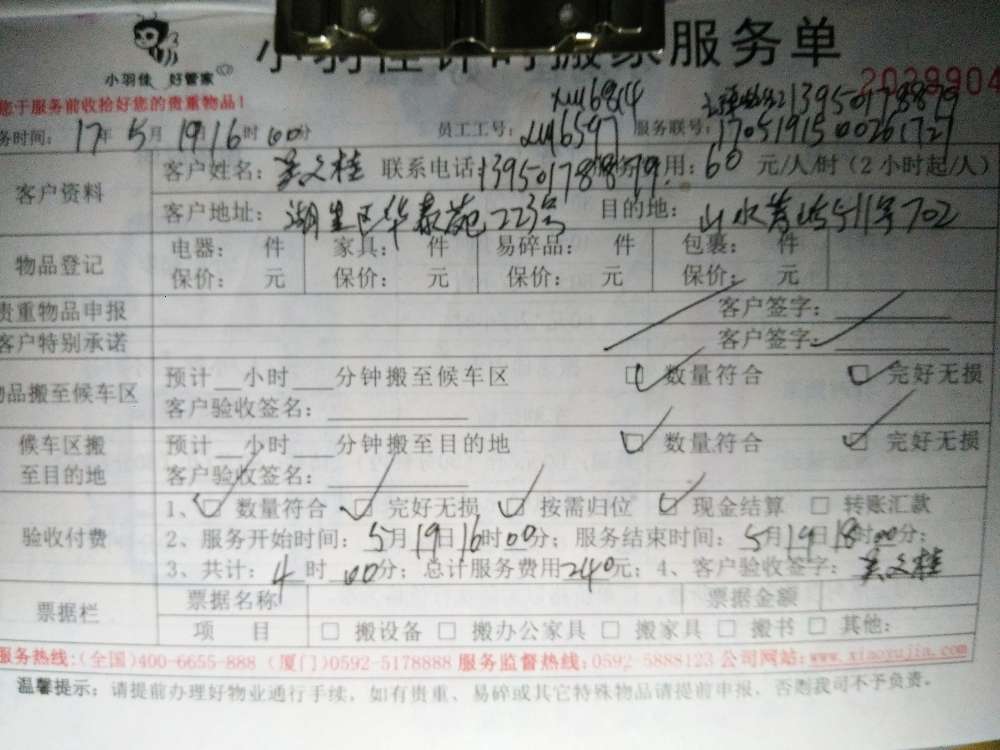 小羽佳 好管家
小羽佳计时搬家服务单
2029904
您于服务前收拾好您的贵重物品!
xm6814 13950178879
务时间: 17年5月19日16时00分 员工工号: xm6597 服务联号: 1705191500261727
客户资料 客户姓名: 吴文桂 联系电话: 13950178879 服务费用: 60 元/人/时 (2小时起/人)
客户地址: 湖里区华泰苑223号 目的地: 山水 511号702
物品登记 电器: 件 家具: 件 易碎品: 件 包裹: 件
保价: 元 保价: 元 保价: 元 保价: 元
贵重物品申报 客户签字:
客户特别承诺 客户签字:
物品搬至候车区 预计__小时___分钟搬至候车区 ☑ 数量符合 ☑ 完好无损
客户验收签名:
候车区搬至目的地 预计__小时___分钟搬至目的地 ☑ 数量符合 ☑ 完好无损
客户验收签名:
验收付费 1、☑ 数量符合 ☑ 完好无损 ☑ 按需归位 ☑ 现金结算 □ 转账汇款
2、服务开始时间: 5月19日16时00分; 服务结束时间: 5月19日18时00分;
3、共计: 4时00分; 总计服务费用240元; 4、客户验收签字: 吴文桂
票据栏 票据名称 票据金额
项 目 □ 搬设备 □ 搬办公家具 □ 搬家具 □ 搬书 □ 其他:
服务热线:(全国)400-6655-888 (厦门)0592-5178888 服务监督热线:0592-5888123 公司网站:www.xiaoyujia.com
温馨提示: 请提前办理好物业通行手续, 如有贵重、易碎或其它特殊物品请提前申报, 否则我司不予负责。